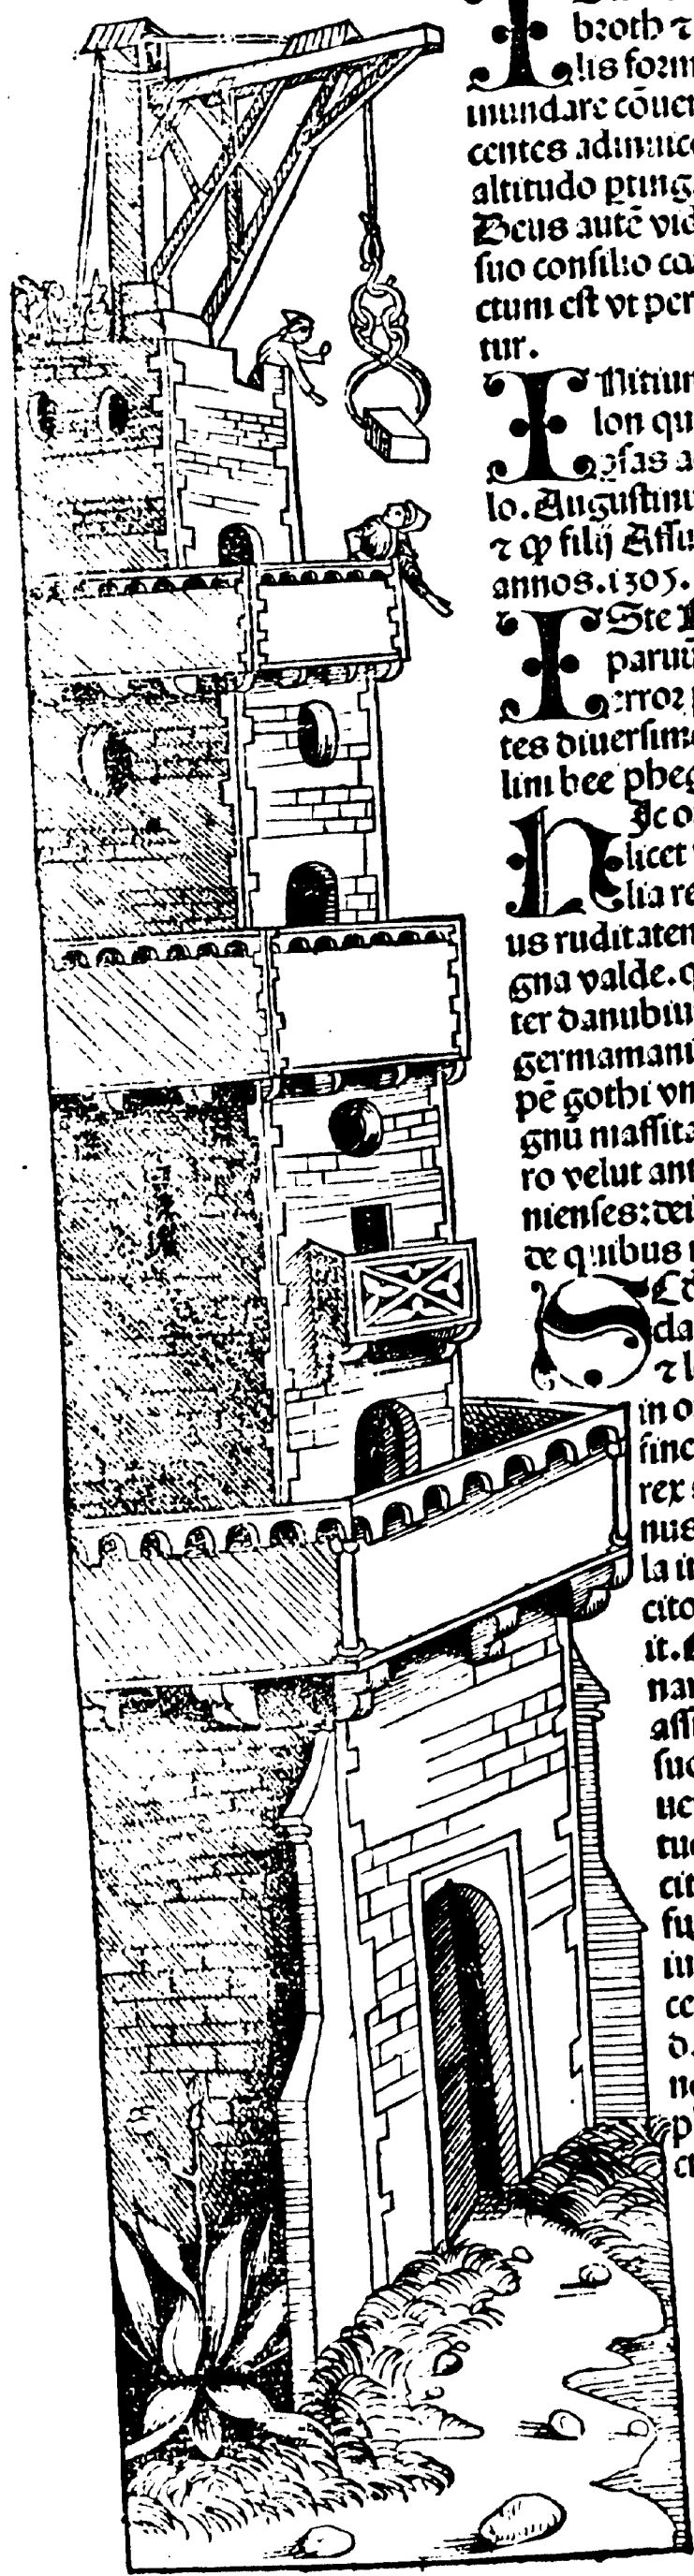 broth ⁊
lis form
mundare cōuen
centes adinuice
altitudo ptinge
Deus autē vid
suo consilio co
ctum est vt per
tur.
INitium
lon qu
psas a
lo. Augustinu
⁊ ꝙ filij Assu
annos.1305.
ISte
paruu
error
tes diuersim
lini bee pheg
HIc o
licet
lia re
us ruditatem
gna valde. q
ter danubiu
germamani
pē gothi vn
gnū massita
ro velut ant
nienses: dei
de quibus
SEd
da
⁊ l
in o
sinc
rex
nus
la it
cito
it.
nar
assi
suo
ue
tu
cit
fu
iu
ce
d.
ne
p
ct